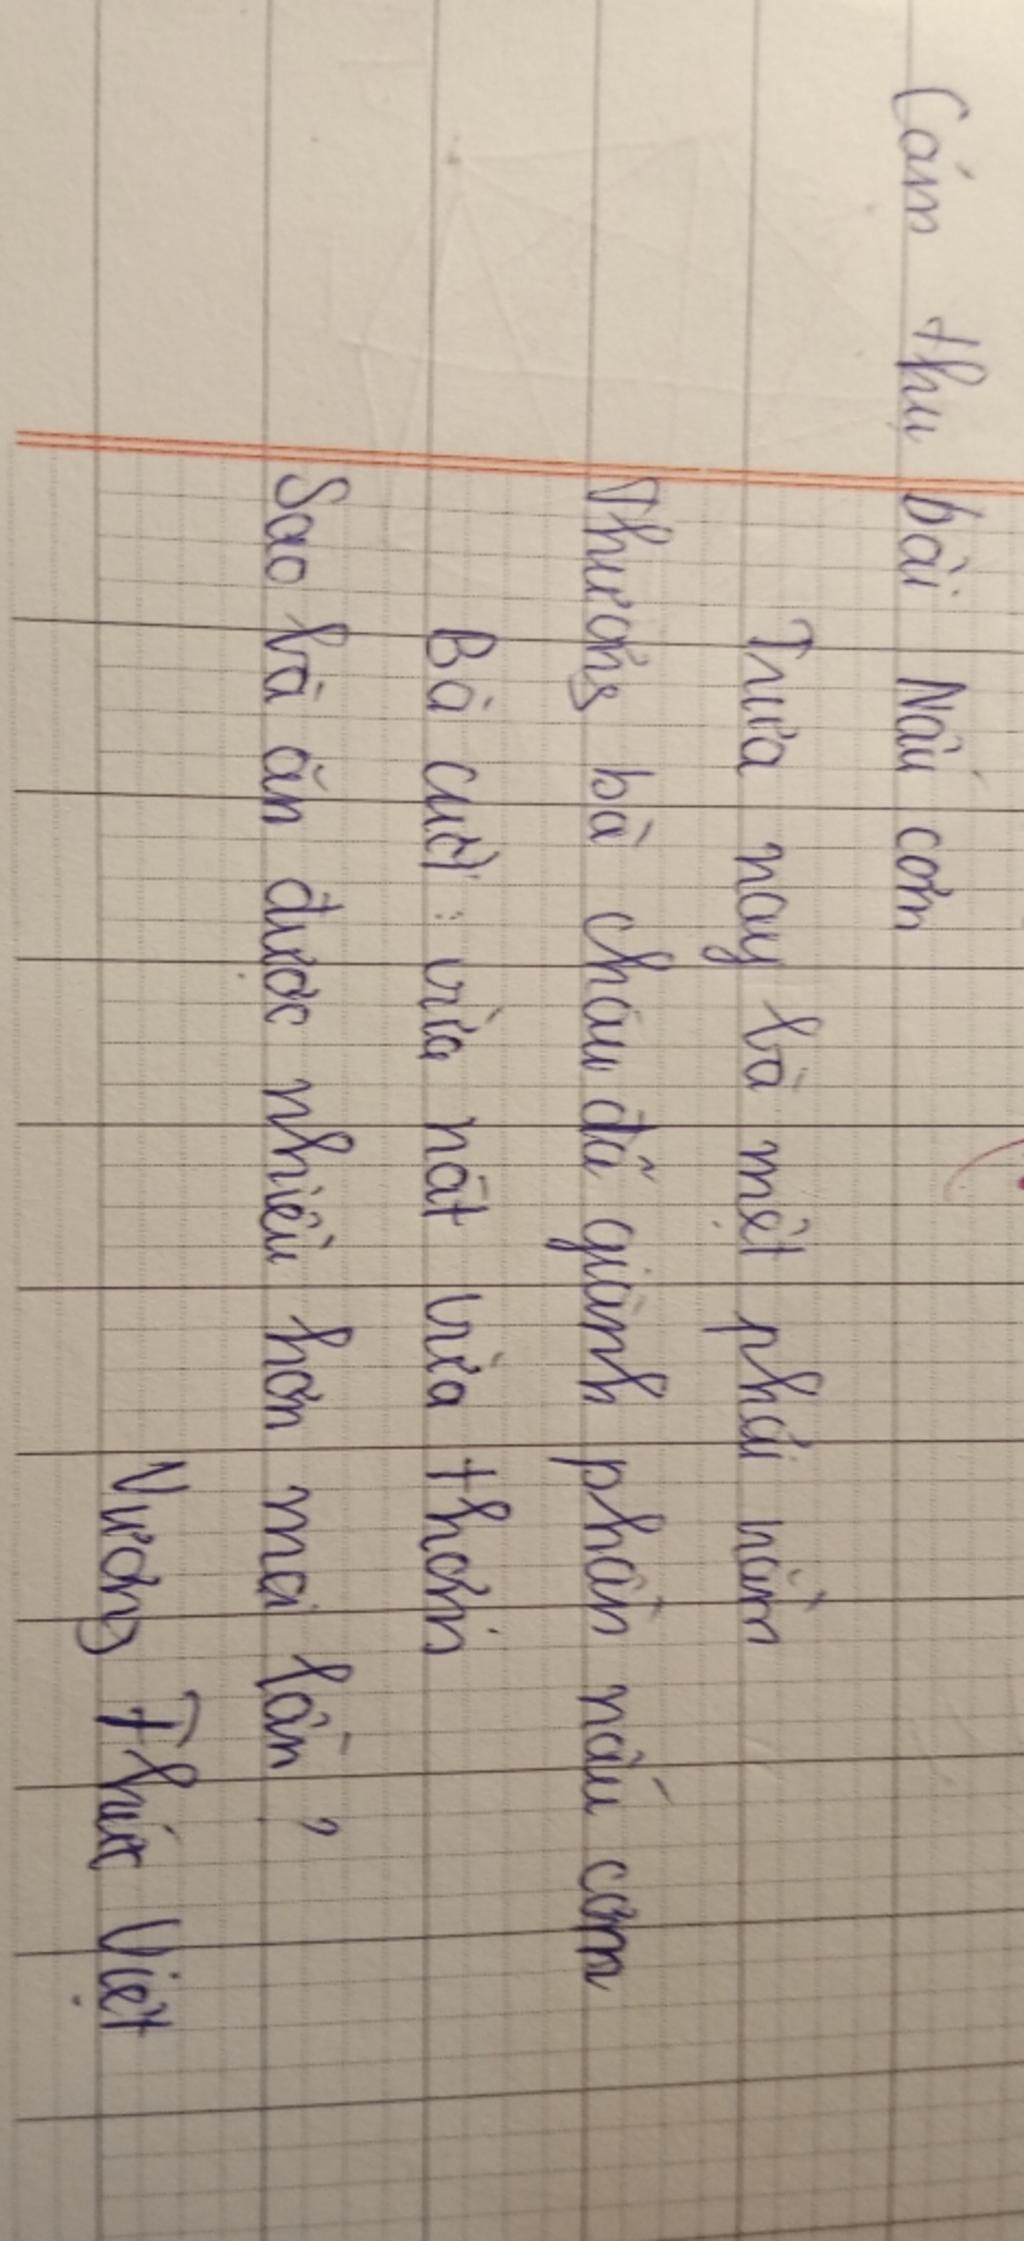 Cảm thụ bài Nấu cơm
Trưa nay bà mệt phải nằm
Thương bà cháu đã giành phần nấu cơm
Bà cười: vừa nát vừa thơm
Sao bà ăn được nhiều hơn mọi lần?
Vương Thừa Việt